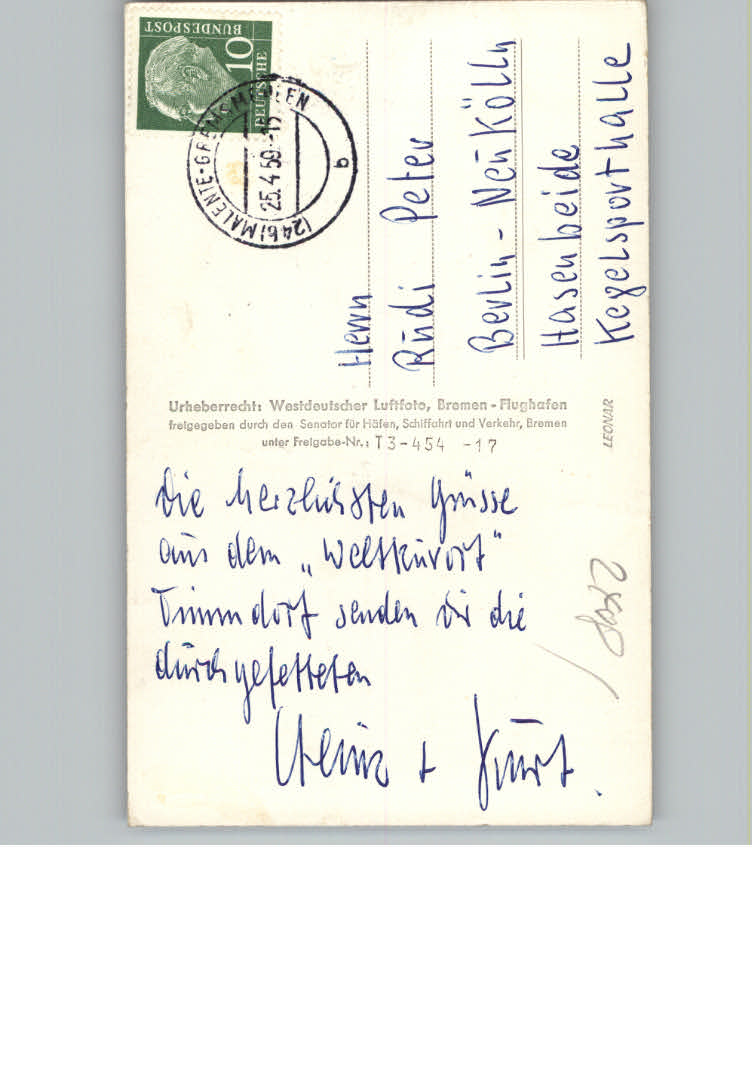 DEUTSCHE
BUNDESPOST
10
(24b) MALENTE-GREMSMÜHLEN
25.4.59.-15
b
Herrn
Rudi Peter
Berlin - Neukölln
Hasenheide
Kegelsporthalle
Urheberrecht: Westdeutscher Luftfoto, Bremen - Flughafen
freigegeben durch den Senator für Häfen, Schiffahrt und Verkehr, Bremen
unter Freigabe-Nr.: T 3 - 454 - 17
LEONAR
Die herzlichsten Grüsse
aus dem „Weltkurort"
Timmdorf senden Dir die
durchgefetteten
Heinz + Kurt.